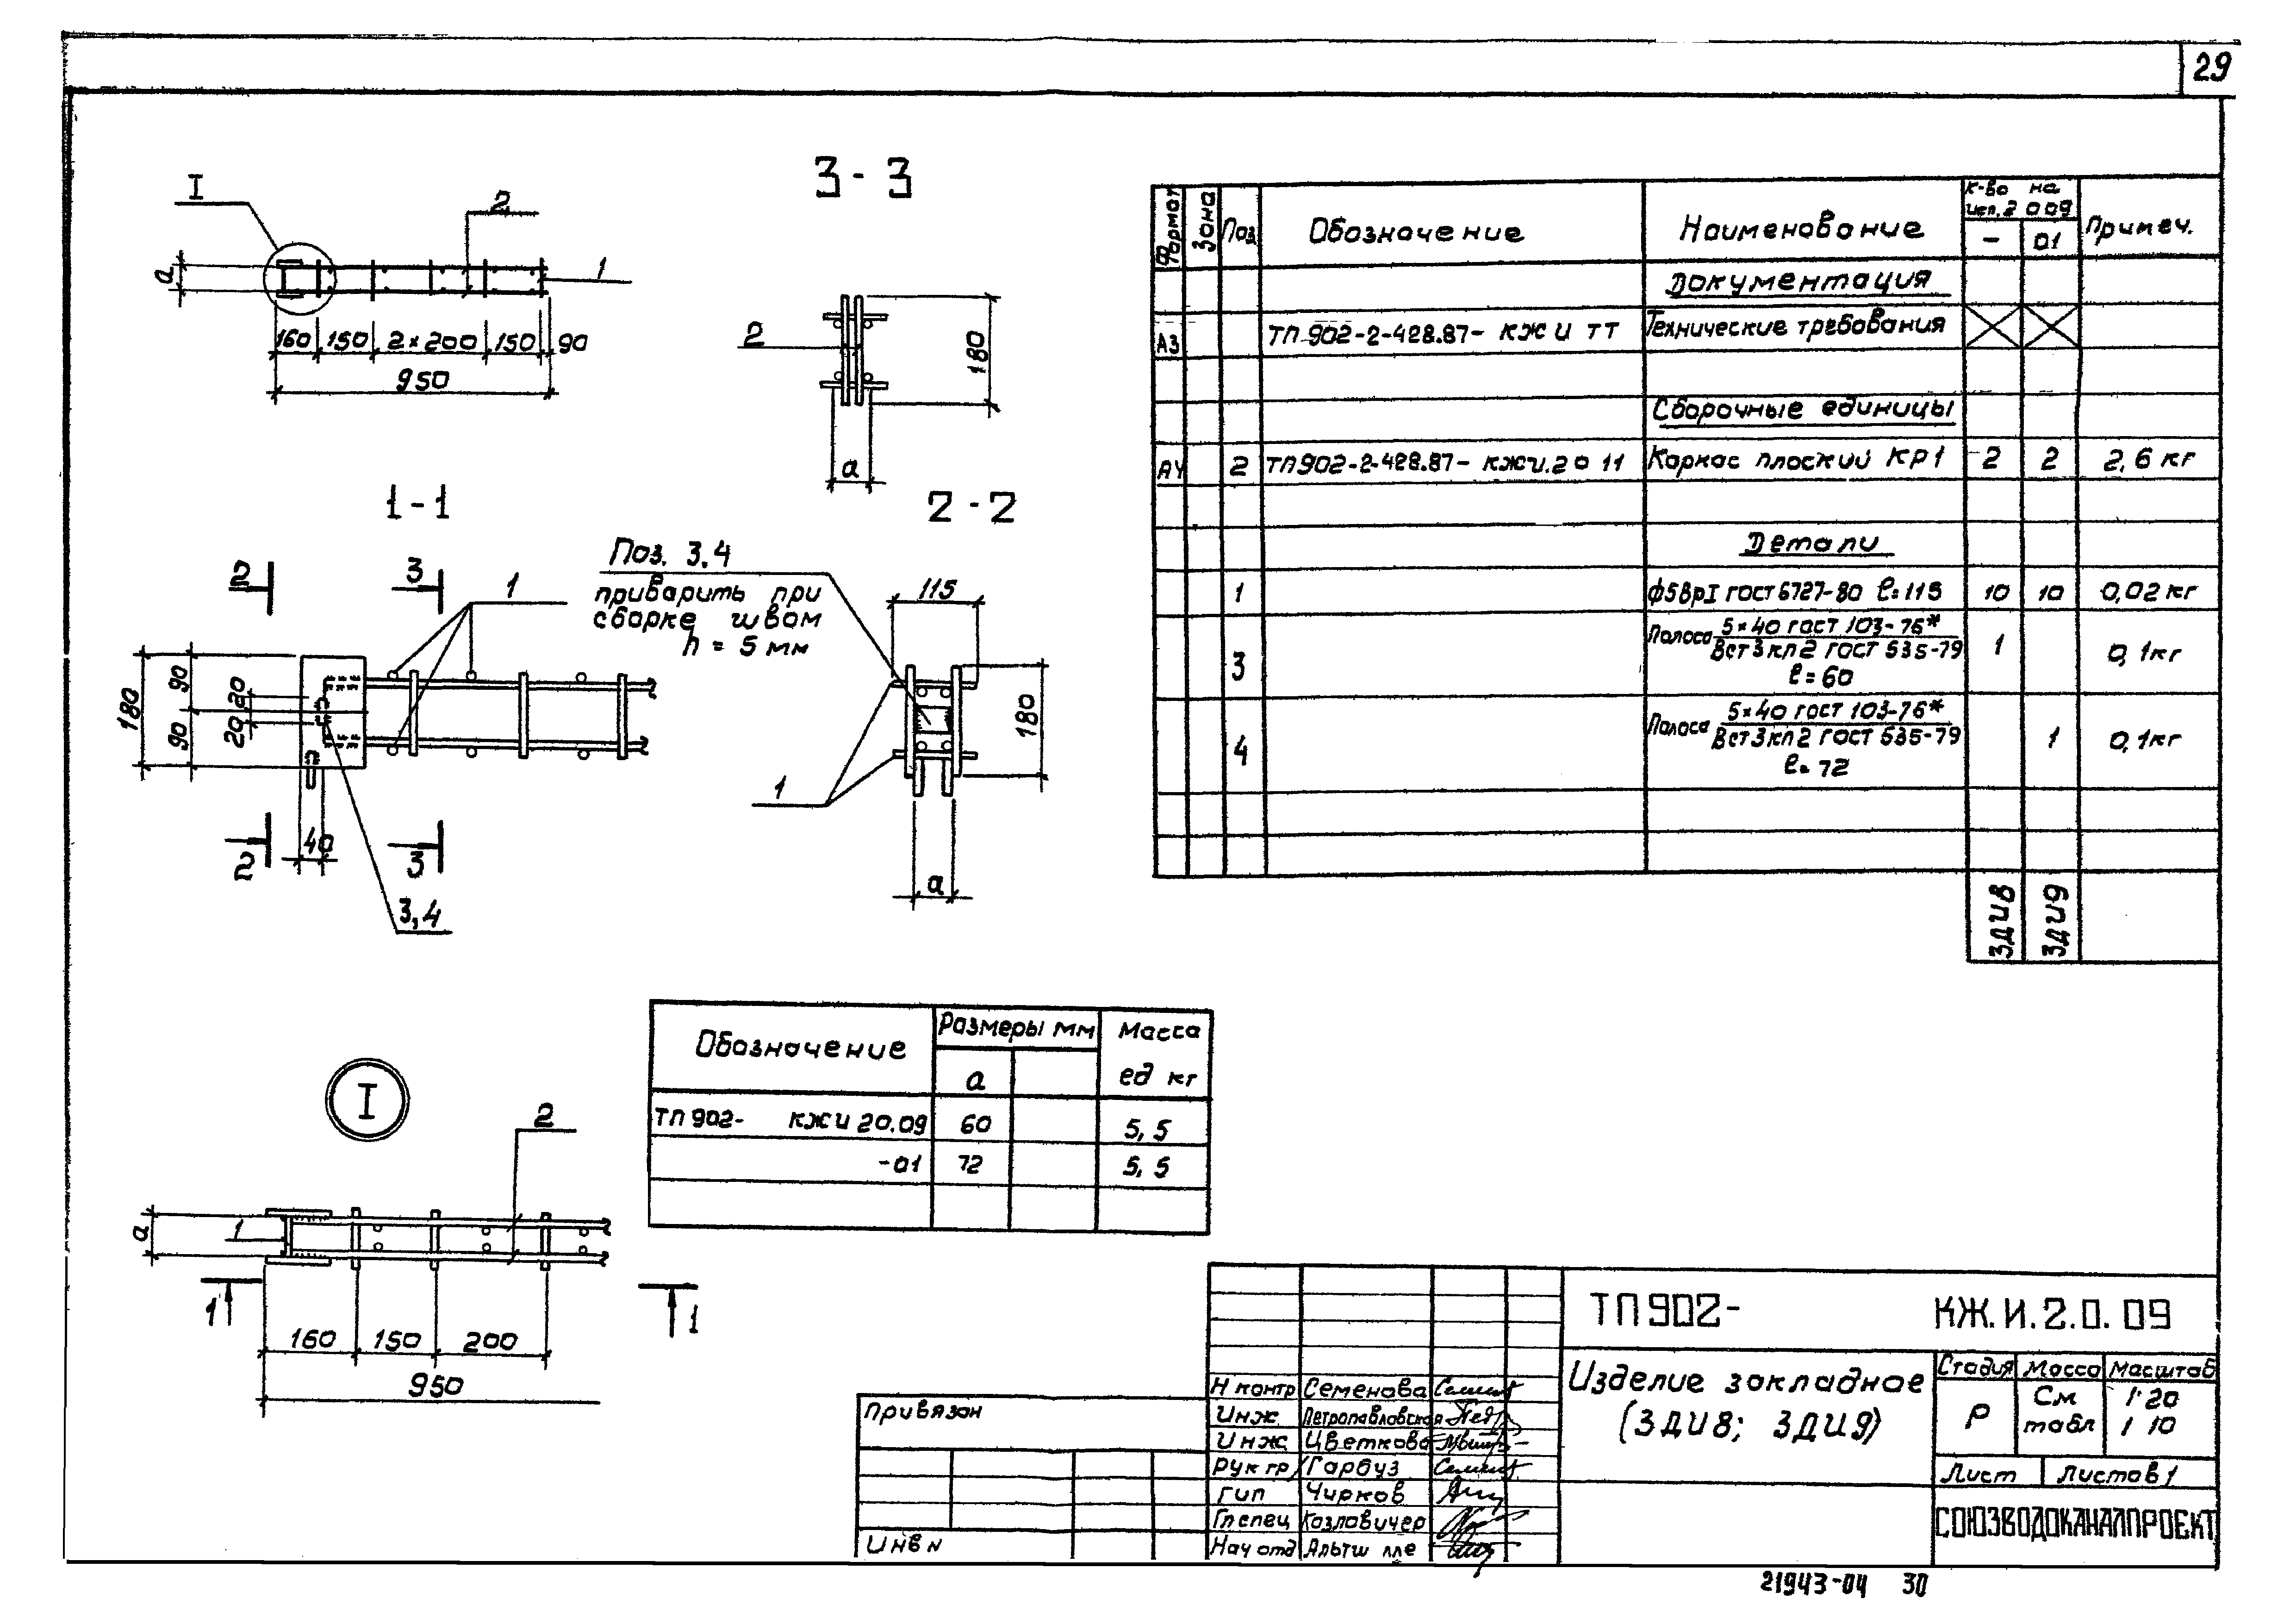 29
I
2
1
а
160 150 2×200 150 90
950
3-3
2
180
а
1-1
2 3 1
90
180
90
20
20
40
2 3
3,4
2-2
Поз. 3,4
приварить при
сборке швом
h = 5 мм
115
180
1
а
Формат Зона Поз. Обозначение Наименование К-во на Примеч.
исп. 2 0 09
- 01
Документация
А3 ТП 902-2-428.87- КЖИ ТТ Технические требования
Сборочные единицы
А4 2 ТП902-2-428.87- КЖИ.2 0 11 Каркас плоский КР1 2 2 2,6 кг
Детали
1 ф5ВрI ГОСТ 6727-80 ℓ=115 10 10 0,02 кг
3 Полоса 5×40 ГОСТ 103-76* 1 0,1кг
Вст3кп2 ГОСТ 535-79
ℓ=60
4 Полоса 5×40 ГОСТ 103-76* 1 0,1кг
Вст3кп2 ГОСТ 535-79
ℓ=72
ЗДИ8 ЗДИ9
Обозначение Размеры мм Масса
а ед кг
ТП 902- КЖИ 20.09 60 5,5
-01 72 5,5
I
2
а
1
1 1
160 150 200
950
ТП902- КЖ.И.2.0.09
Изделие закладное
(ЗДИ8; ЗДИ9)
Стадия Масса Масштаб
Р См табл 1:20
1 10
Лист Листов 1
СОЮЗВОДОКАНАЛПРОЕКТ
Н контр Семенова
Инж Петропавловская
Инж Цветкова
Рук гр Гарбуз
Гип Чирков
Гл спец Козловичер
Нач отд
Привязан
Инв н
21943-04 30